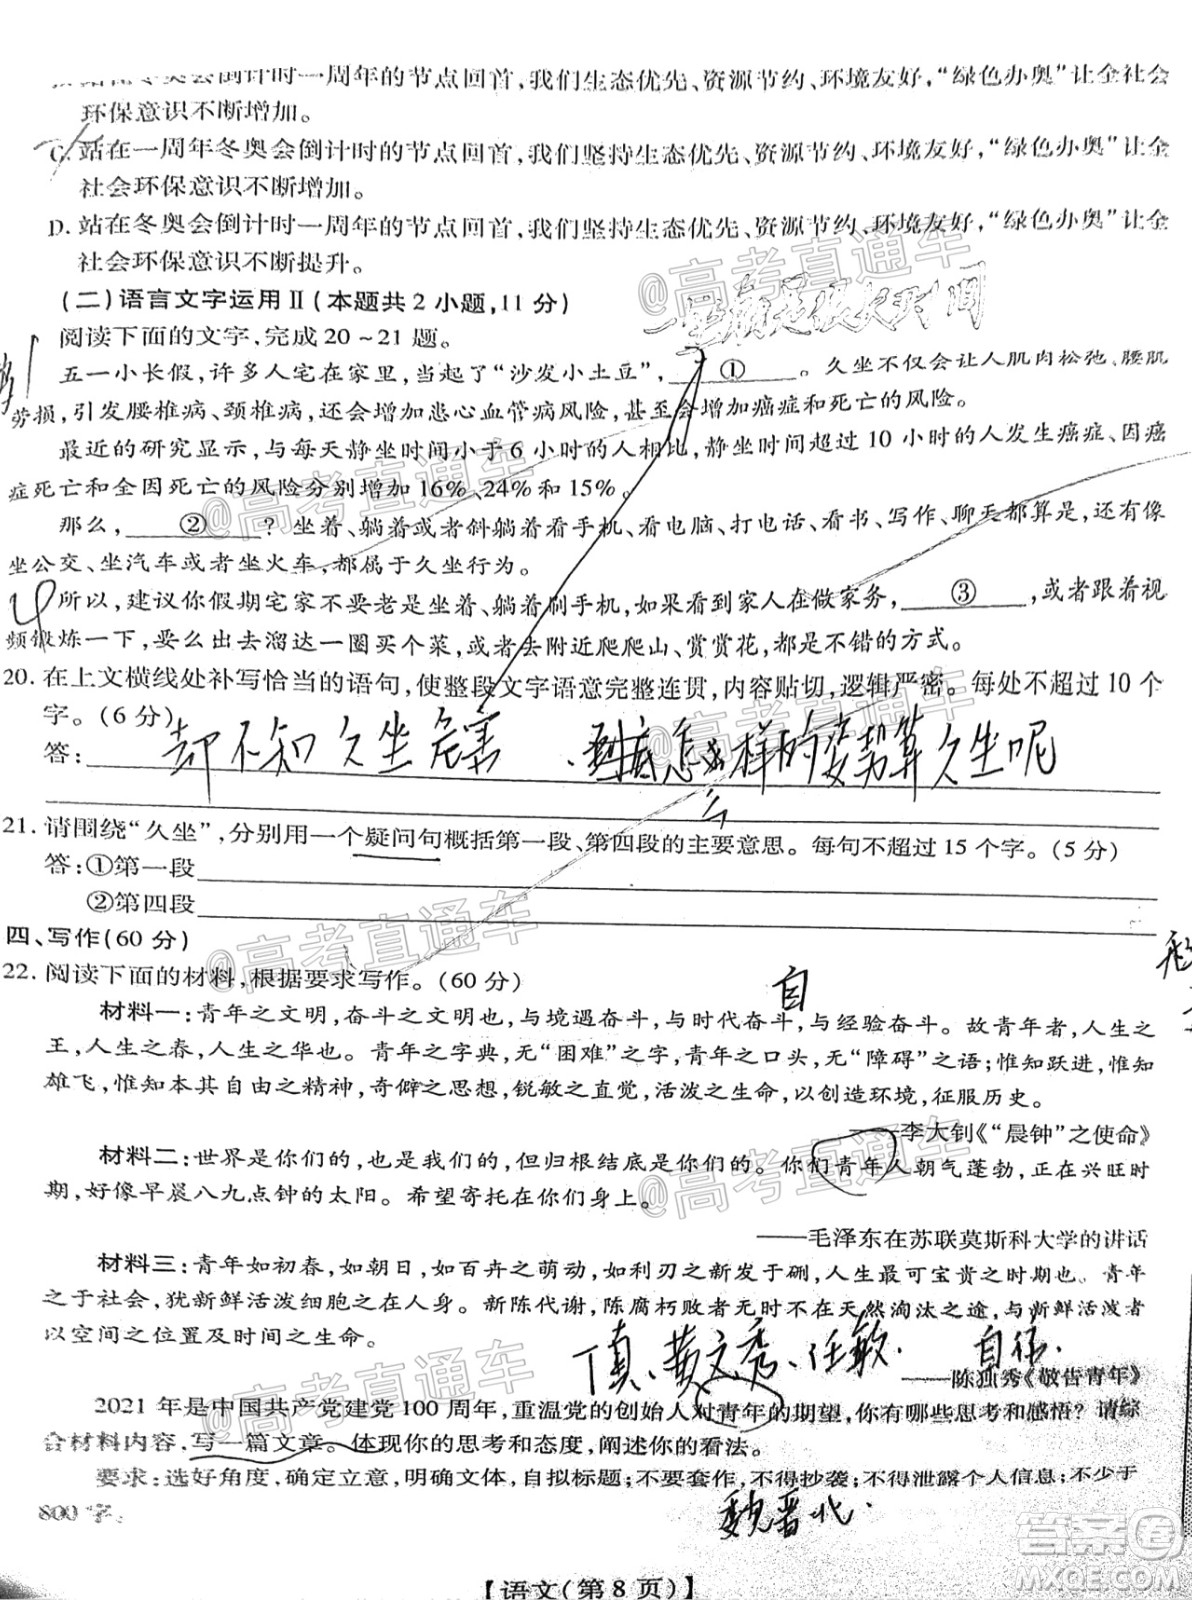 冬奥会倒计时一周年的节点回首，我们生态优先、资源节约、环境友好，“绿色办奥”让全社会
环保意识不断增加。
C. 站在一周年冬奥会倒计时的节点回首，我们坚持生态优先、资源节约、环境友好，“绿色办奥”让全
社会环保意识不断增加。
D. 站在冬奥会倒计时一周年的节点回首，我们坚持生态优先、资源节约、环境友好，“绿色办奥”让全
社会环保意识不断提升。
@高考直通车
（二）语言文字运用Ⅱ（本题共2小题，11分）
阅读下面的文字，完成20~21题。
五一小长假，许多人宅在家里，当起了“沙发小土豆”，①。久坐不仅会让人肌肉松弛、腰肌
劳损，引发腰椎病、颈椎病，还会增加患心血管病风险，甚至会增加癌症和死亡的风险。
最近的研究显示，与每天静坐时间小于6小时的人相比，静坐时间超过10小时的人发生癌症、因癌
症死亡和全因死亡的风险分别增加16%、24%和15%。
@高考直通车
那么，②？坐着、躺着或者斜躺着看手机、看电脑、打电话、看书、写作、聊天都算是，还有像
坐公交、坐汽车或者坐火车，都属于久坐行为。
所以，建议你假期宅家不要老是坐着、躺着刷手机，如果看到家人在做家务，③，或者跟着视
频锻炼一下，要么出去溜达一圈买个菜，或者去附近爬爬山、赏赏花，都是不错的方式。
20. 在上文横线处补写恰当的语句，使整段文字语意完整连贯，内容贴切，逻辑严密。每处不超过10个
字。（6分）
@高考直通车
答：却不知久坐危害 到底怎么样的姿势算久坐呢
21. 请围绕“久坐”，分别用一个疑问句概括第一段、第四段的主要意思。每句不超过15个字。（5分）
答：①第一段
②第四段
四、写作（60分）
@高考直通车
22. 阅读下面的材料，根据要求写作。（60分）
自
材料一：青年之文明，奋斗之文明也，与境遇奋斗，与时代奋斗，与经验奋斗。故青年者，人生之
王，人生之春，人生之华也。青年之字典，无“困难”之字，青年之口头，无“障碍”之语；惟知跃进，惟知
雄飞，惟知本其自由之精神，奇僻之思想，锐敏之直觉，活泼之生命，以创造环境，征服历史。
——李大钊《“晨钟”之使命》
材料二：世界是你们的，也是我们的，但归根结底是你们的。你们青年人朝气蓬勃，正在兴旺时
期，好像早晨八九点钟的太阳。希望寄托在你们身上。
@高考直通车
——毛泽东在苏联莫斯科大学的讲话
材料三：青年如初春，如朝日，如百卉之萌动，如利刃之新发于硎，人生最可宝贵之时期也。青年
之于社会，犹新鲜活泼细胞之在人身。新陈代谢，陈腐朽败者无时不在天然淘汰之途，与新鲜活泼者
以空间之位置及时间之生命。
丁真、黄文秀、任敏. 自信.
——陈独秀《敬告青年》
@高考直通车
2021年是中国共产党建党100周年，重温党的创始人对青年的期望，你有哪些思考和感悟？请综
合材料内容，写一篇文章。体现你的思考和态度，阐述你的看法。
要求：选好角度，确定立意，明确文体，自拟标题；不要套作，不得抄袭；不得泄露个人信息；不少于
800字。
魏晋北.
答案圈
MXQE.COM
【语文（第8页）】